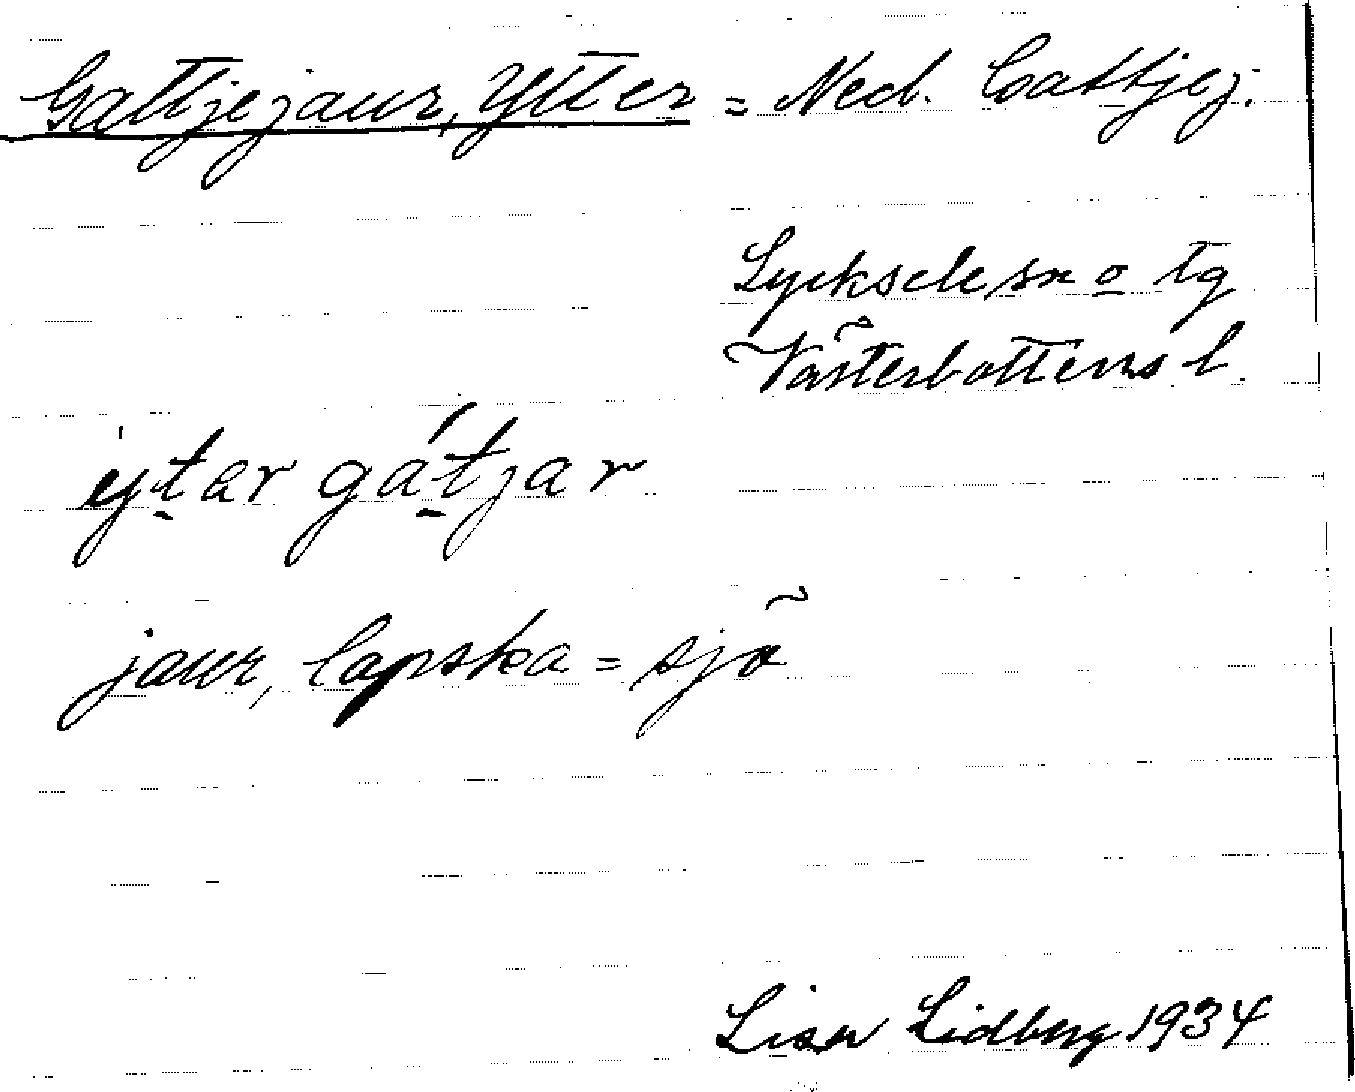 Gattjejaur, Ytter = Ned. Cattjej.
Lycksele sn o tg
Västerbottens l.
ytar gátjar
jaur, lapska = sjö
Lisen Lidberg 1934